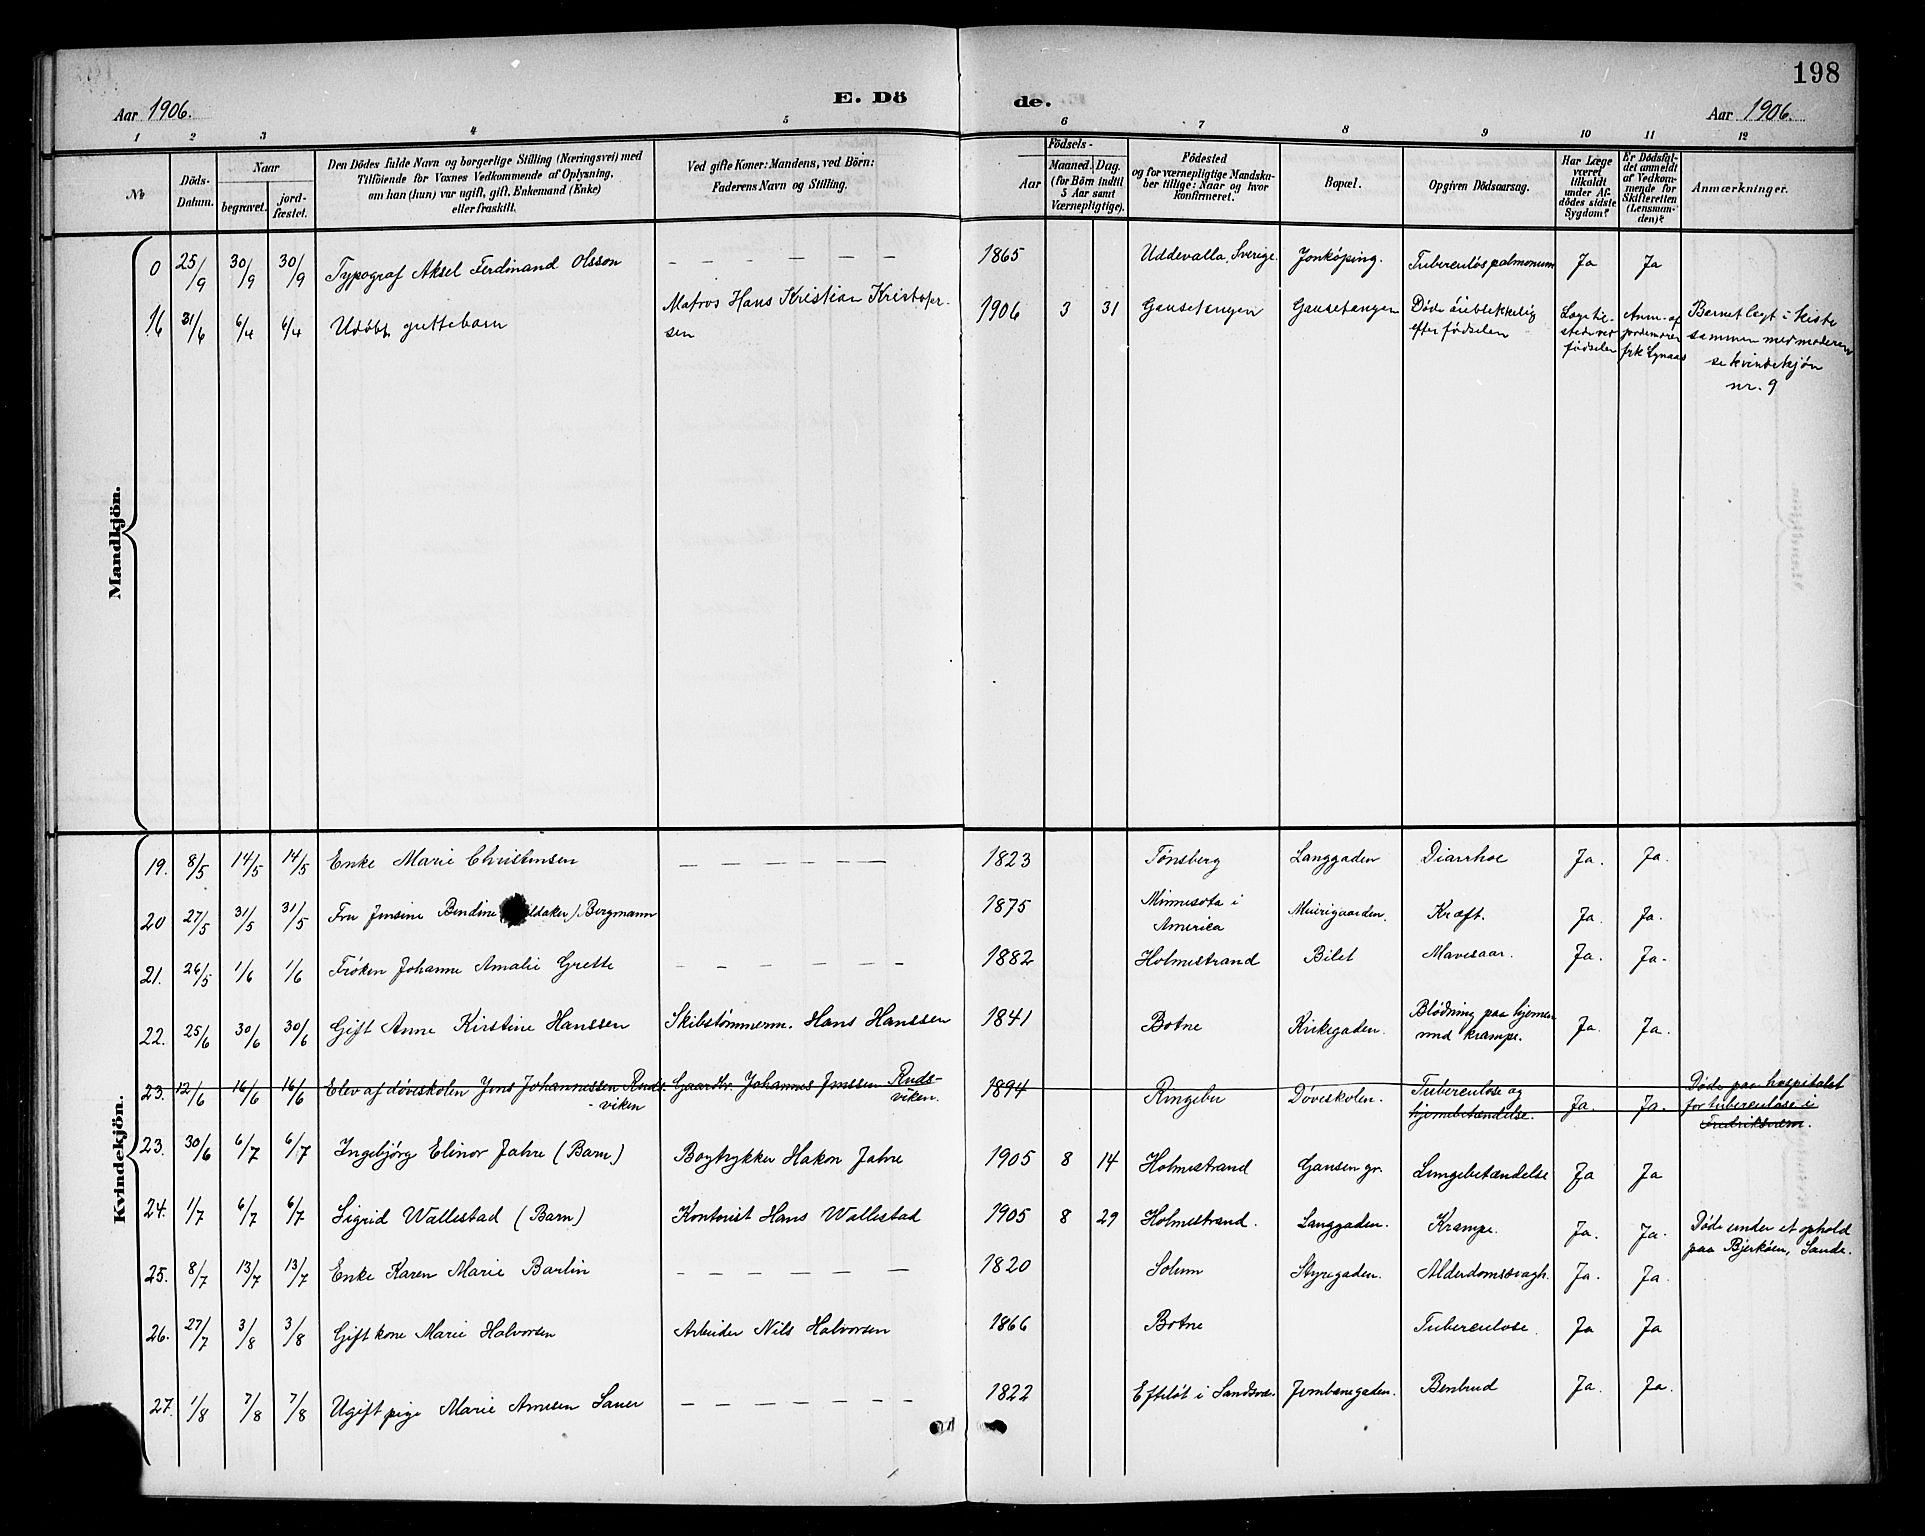 198
Aar 1906.
E. Dö
de.
Aar 1906.
1 2 3 4 5 6 7 8 9 10 11 12
№
Döds-Datum.
Naar
begravet.
jord-fæstet.
Den Dödes fulde Navn og borgerlige Stilling (Næringsvei) med
Tilföiende for Voxnes Vedkommende af Oplysning,
om han (hun) var ugift, gift, Enkemand (Enke)
eller fraskilt.
Ved gifte Koner: Mandens, ved Börn:
Faderens Navn og Stilling.
Födsels-
Aar
Maaned.
Dag.
(for Börn indtil
5 Aar samt
Værnepligtige).
Födested
og for værnepligtige Mandska-
ber tillige: Naar og hvor
konfirmeret.
Bopæl.
Opgiven Dödsaarsag.
Har Læge
været
tilkaldt
under Af-
dödes sidste
Sygdom?
Er Dödsfal-
det anmeldt
af Vedkom-
mende for
Skifteretten
(Lensman-
den)?
Anmærkninger.
Mandkjön.
0 25/9 30/9 30/9 Typograf Aksel Ferdinand Olsson — — — — — — 1865 Uddevalla, Sverige. Jonköping. Tuberculos pulmonum Ja Ja
16 31/6 6/4 6/4 Udöbt guttebarn Matros Hans Kristian Kristofer-
sen 1906 3 31 Gausetangen Gausetangen Döde öieblikkelig
efter födselen Læge til-
stede ved
födselen Anm. af
jordemoren
frk Lynaas Barnet lagt i kiste
sammen med moderen
se kvindekjön
nr. 9
Kvindekjön.
19. 8/5 14/5 14/5 Enke Marie Christensen — — — — — — 1823 Tønsberg Langgaden Diarrhoe Ja. Ja.
20 27/5 31/5 31/5 Fru Jensine Bendine ldaker) Bergmann 1875 Minnesota i
America Meierigaarden. Kræft. Ja. Ja.
21. 26/5 1/6 1/6 Frøken Johanne Amalie Grette — — — — — — 1882 Holmestrand Bilet Mavesaar. Ja. Ja.
22. 25/6 30/6 30/6 Gift Anne Kirstine Hanssen Skibstömmerm. Hans Hanssen 1841 Botne Kirkegaden. Blödning paa hjernen
med krampe. Ja. Ja.
23. 12/6 16/6 16/6 Elev af døveskolen Jens Johannessen Ruds-
viken Gaardbr. Johannes Jenssen Ruds-
viken. 1894 Ringebu Døveskolen. Tuberculose og
hjernebetændelse. Ja. Ja. Døde paa hospitalet
for tuberculose i
Fredriksværn.
23. 30/6 6/7 6/7 Ingebjørg Elinor Jahre (Barn) Bogtrykker Hakon Jahre 1905 8 14 Holmestrand Gausen gr. Lungebetændelse Ja Ja
24. 1/7 6/7 6/7 Sigrid Wallestad (Barn) Kontorist Hans Wallestad 1905 8 29 Holmestrand. Langgaden. Krampe. Ja. Ja. Døde under et ophold
paa Bjerkøen, Sande.
25. 8/7 13/7 13/7 Enke Karen Marie Barlin — — — — — — 1820 Solum Styregaden. Alderdomssvagh. Ja. Ja.
26. 27/7 3/8 3/8 Gift kone Marie Halvorsen Arbeider Nils Halvorsen 1866 Botne Tuberculose. Ja Ja
27. 1/8 7/8 7/8 Ugift pige Marie Amesen Sauer — — — — — — 1822 Efteløt i Sandsvær Jernbanegaden. Benbrud Ja. Ja.